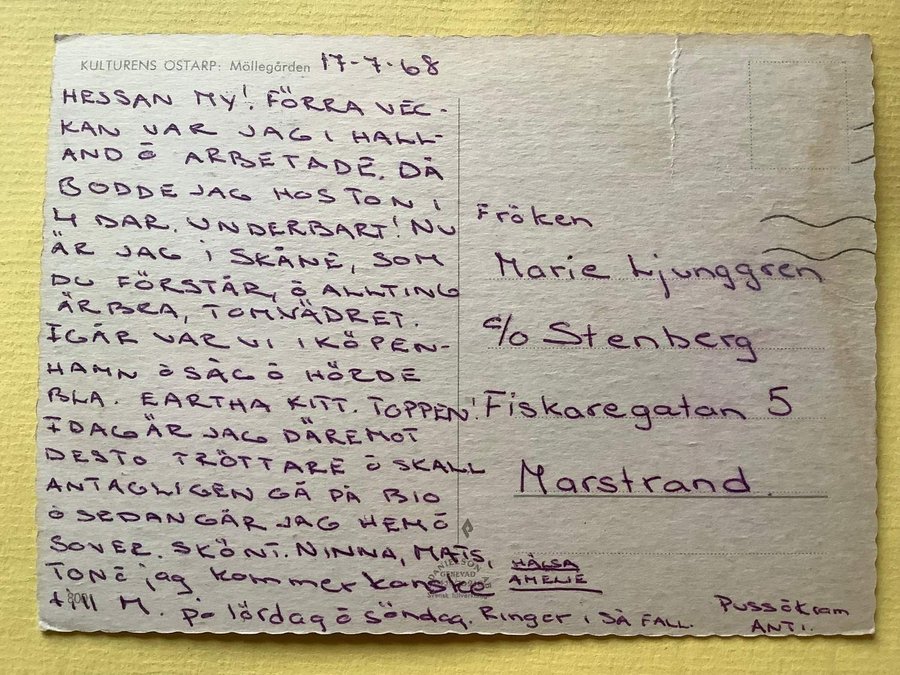 KULTURENS ÖSTARP: Möllegården 17-7-68
HESSAN MY! FÖRRA VEC-
KAN VAR JAG I HALL-
AND Ö ARBETADE. DÅ
BODDE JAG HOS TON I
4 DAR. UNDERBART! NU
ÄR JAG I SKÅNE, SOM
DU FÖRSTÅR, Ö ALLTING
ÄR BRA, TOM VÄDRET.
IGÅR VAR VI I KÖPEN-
HAMN Ö SÅG Ö HÖRDE
BLA. EARTHA KITT. TOPPEN!
IDAG ÄR JAG DÄREMOT
DESTO TRÖTTARE Ö SKALL
ANTAGLIGEN GÅ PÅ BIO
Ö SEDAN GÅR JAG HEM Ö
SOVER. SKÖNT. NINNA, MATS,
TONE jag kommer kanske
till M. på lördag ö söndag. Ringer I SÅ FALL.
HÄLSA
AMELIE
Pussökram
ANTI.
Fröken
Marie Ljunggren
c/o Stenberg
Fiskaregatan 5
Marstrand.
DANIELSON
GENEVAD
Svensk tillverkning